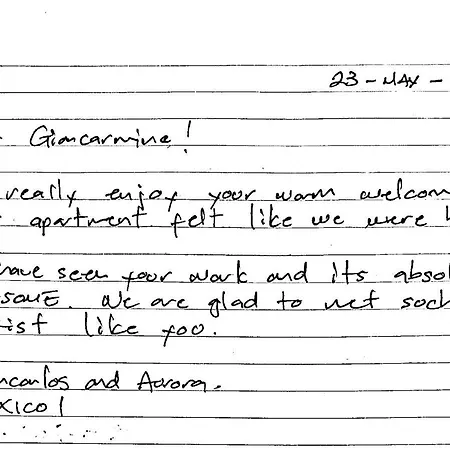 23-MAY-
Giancarmine!
really enjoy your warm welcom
apartment felt like we were h
have seen your work and its absol
SOME. We are glad to met soch
ist like yoo.
ncarlos and Aurora.
XICO!